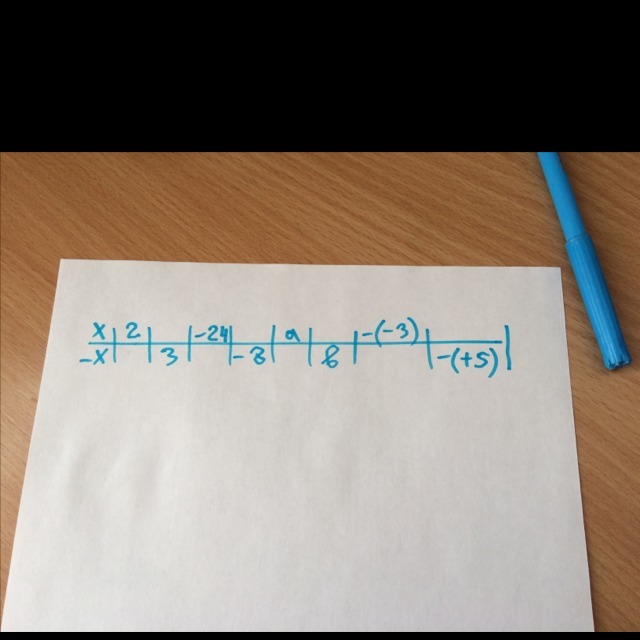 x 2 -24 a -(-3)
-x 3 -8 b -(+5)